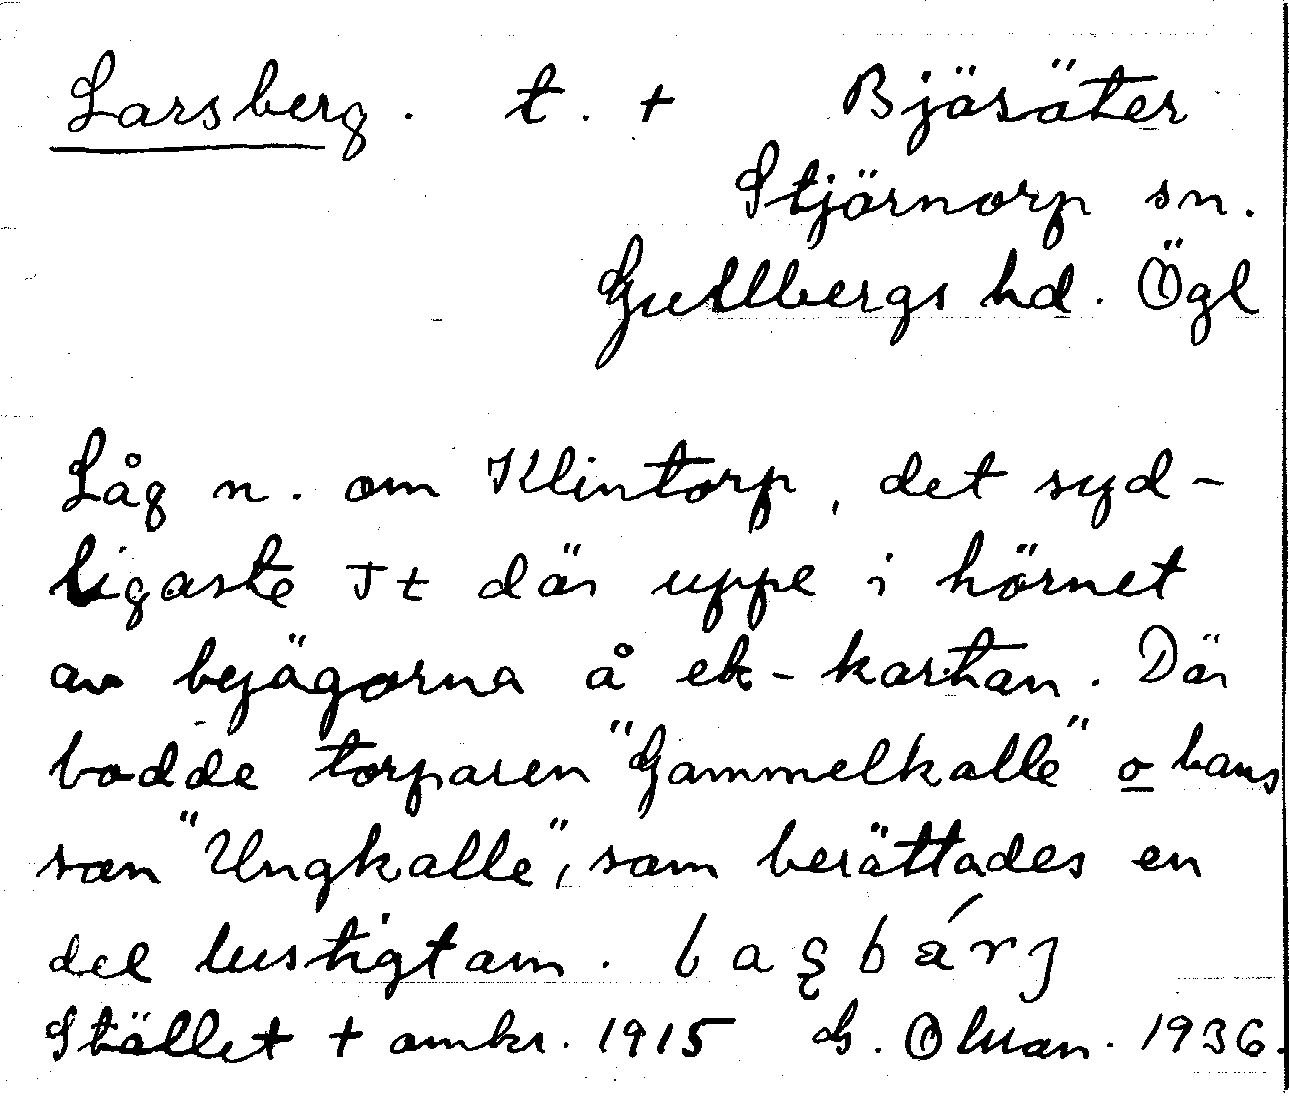 Larsberg. t. + Bjäsäter
Stjärnorp sn.
Gullbergs hd. Ögl
Låg n. om Klintorp, det syd-
ligaste Jt där uppe i hörnet
av beägorna å ek-kartan. Där
bodde torparen "Gammelkalle" o hans
son "Ungkalle", som berättades en
del lustigt om.
Stället + omkr. 1915 G. Olsson. 1936.